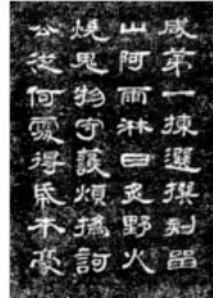 咸第一揀選撰刻畱
山阿雨淋日炙野火
燒鬼物守護煩撝訶
公從何處得帋本毫